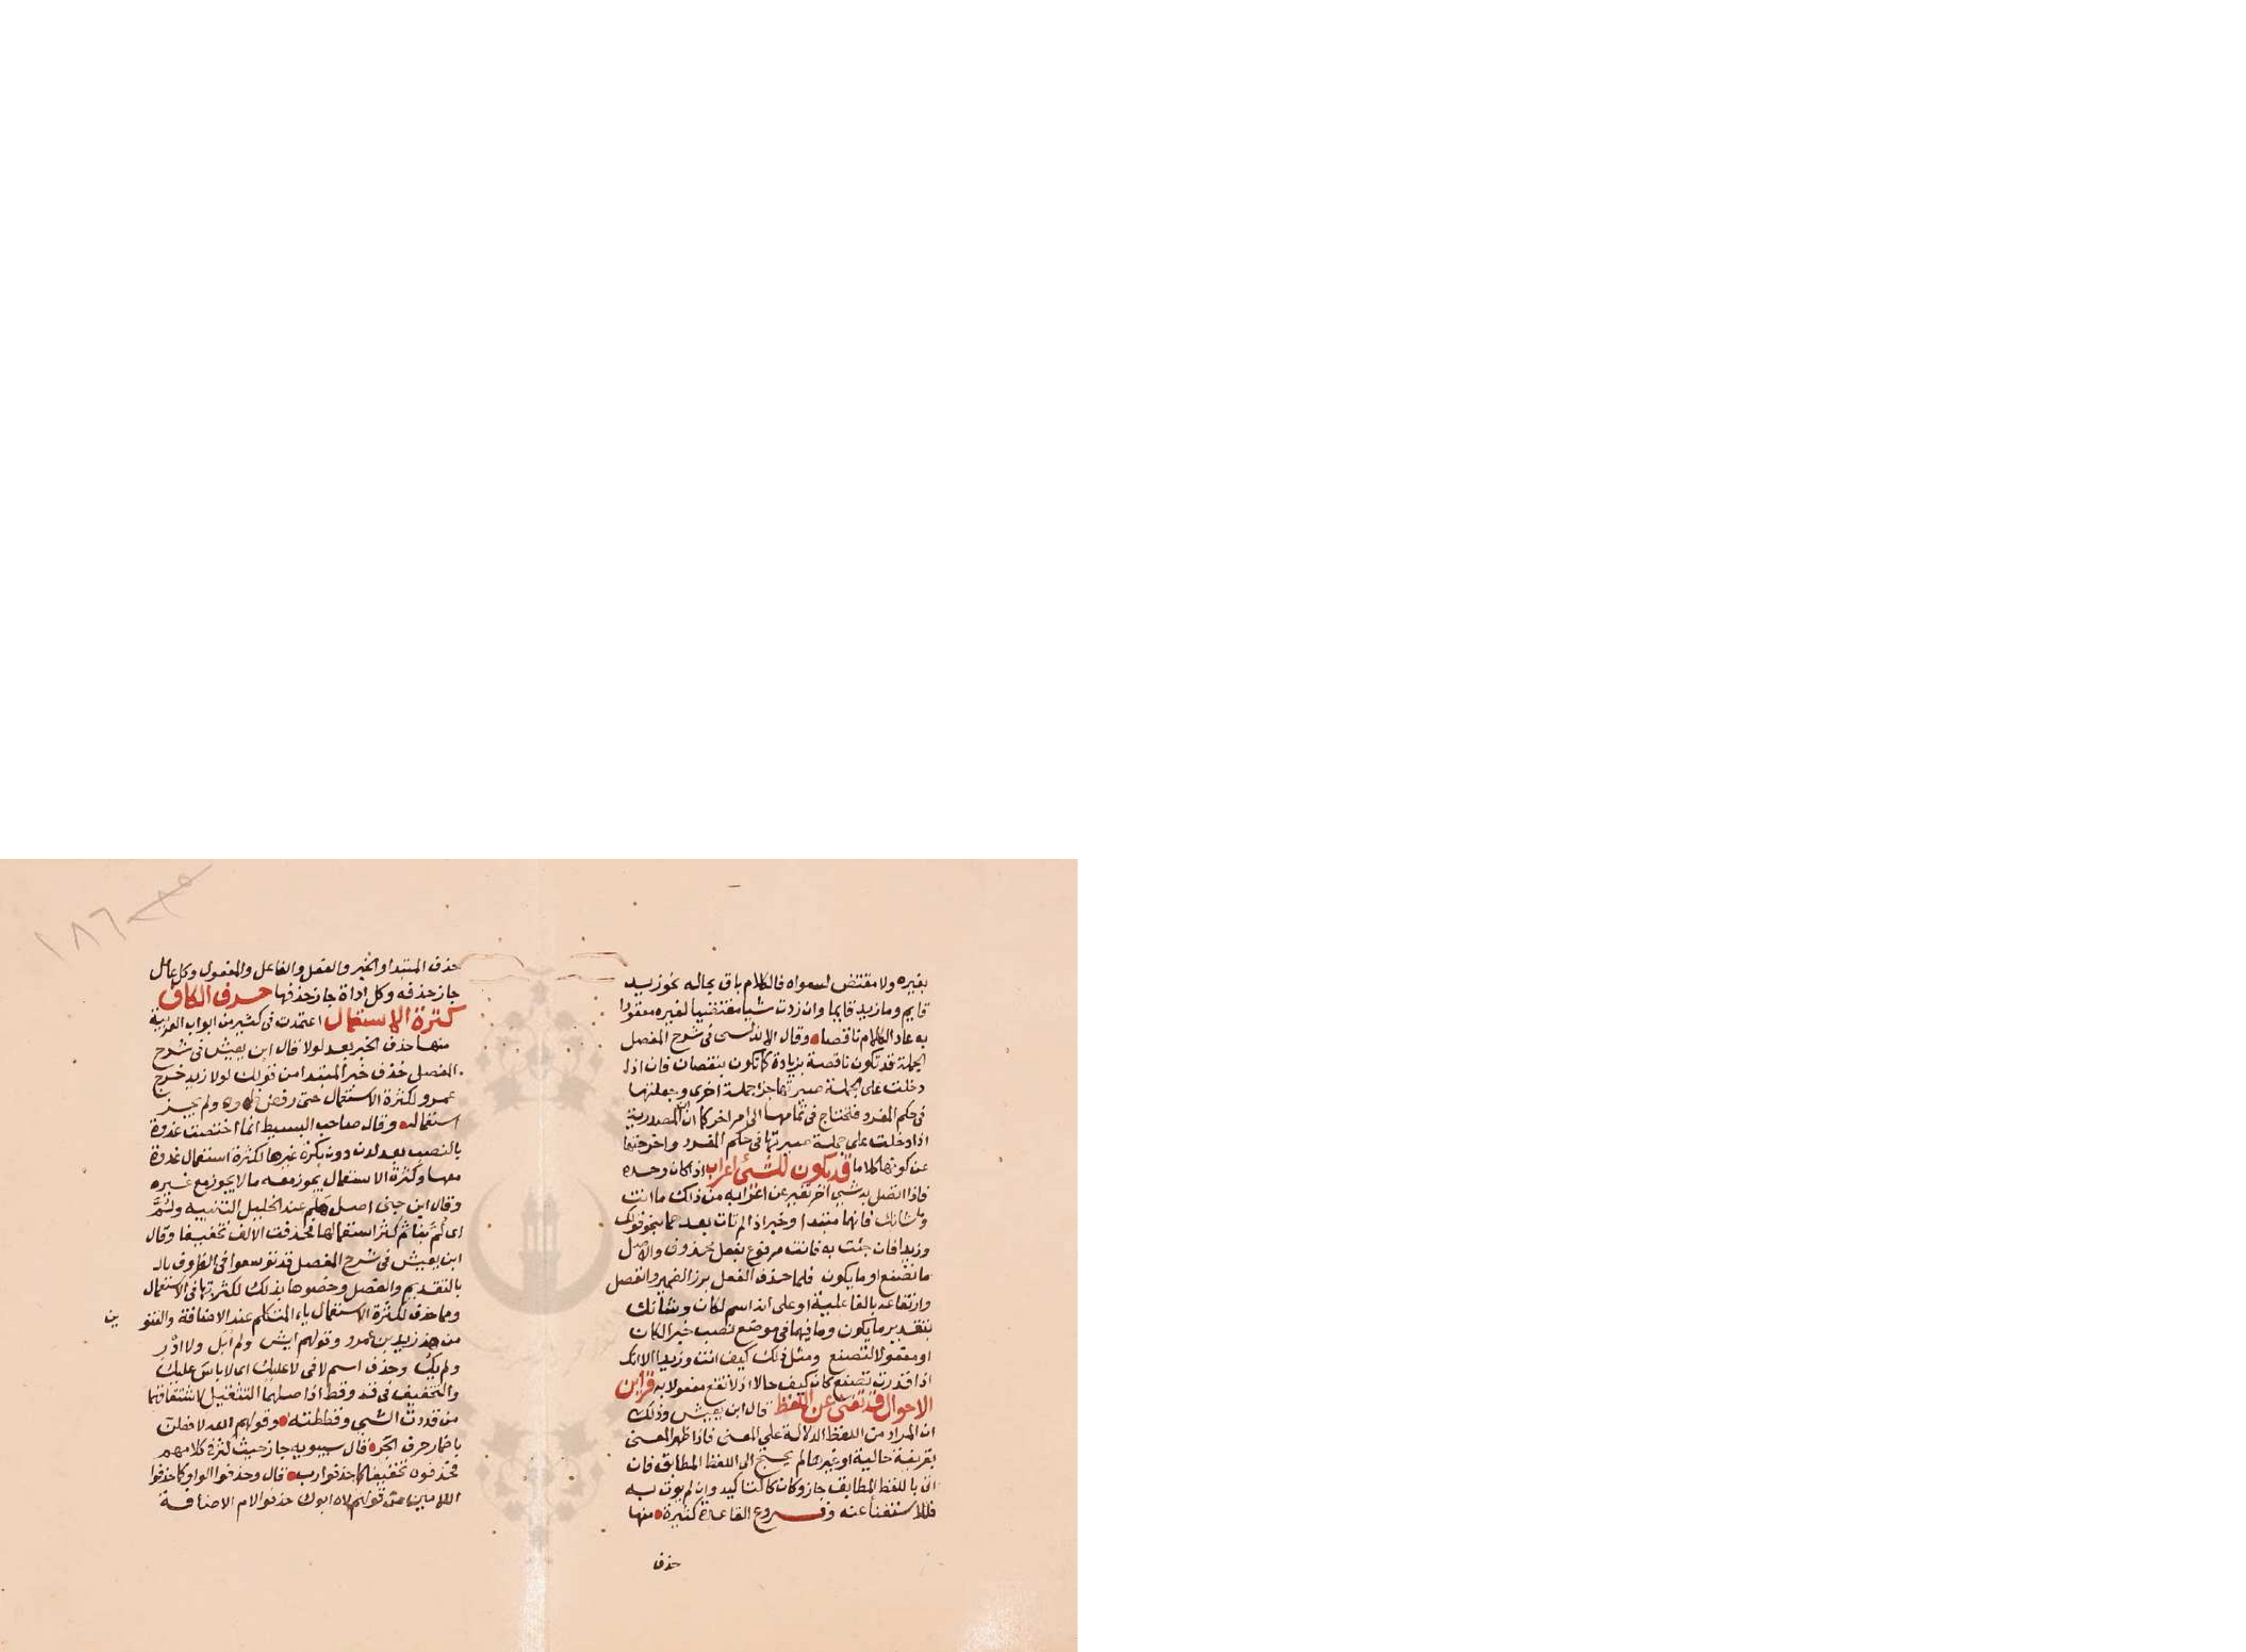 بغيره ولا مقتض لسواه فالكلام باق بحاله نحو زيد
قايم وما زيد قايما وان زدت شيا مقتضيا لغيره معقودا
به عاد الكلام ناقصا وقال الاندلسى فى شرح المفصل
الجملة قد تكون ناقصة بزيادة كما تكون بنقصان فان اذا
دخلت على الجملة صيرتها جزا جملة اخرى وجعلتها
فى حكم المفرد فتحتاج فى تمامها الى امر اخر كما ان المصدرية
اذا دخلت على جملة صيرتها فى حكم المفرد واخرجتها
عن كونها كلاما قد يكون للشئ اعراب اذا كان وحده
فاذا اتصل به شئ اخر تغير عن اعرابه من ذلك ما انت
وما شانك فانهما مبتدا وخبر اذا لم تات بعدهما بنحو قولك
وزيدا فان جئت به فانت مرفوع بفعل محذوف والاصل
ما تصنع او ما يكون فلما حذف الفعل برز الضمير وانفصل
وارتفاعه بالفاعلية او على انه اسم لكان وشانك
بتقدير ما يكون وما فيهما فى موضع نصب خبر الكان
او مفعولا لتصنع ومثل ذلك كيف انت وزيدا الا انك
اذا قدرت تصنع كان كيف حالا اذ لا تقع مفعولا به قراين
الاحوال قد تغنى عن اللفظ قال ابن يعيش وذلك
ان المراد من اللفظ الدلالة على المعنى فاذا ظهر المعنى
بقرينة حالية او غيرها لم يحتج الى اللفظ المطابق فان
اتى باللفظ المطابق جاز وكان كالتاكيد وان لم يوت به
فللاستغنا عنه وفروع القاعدة كثيرة منها
حذف
١٨٦
حذف المبتدا والخبر والفعل والفاعل والمفعول وكل عامل
جاز حذفه وكل اداة جاز حذفها حرف الكاف
كثرة الاستعمال اعتمدت فى كثير من ابواب العربية
منها حذف الخبر بعد لولا قال ابن يعيش فى شرح
المفصل حذف خبر المبتدا من قولك لولا زيد خرج
عمرو لكثرة الاستعمال حتى رفض ظهوره ولم يجز
استعماله وقال صاحب البسيط انما اختصت غدوة
بالنصب بعد لدن دون بكرة غيرها لكثرة استعمال غدوة
معها وكثرة الاستعمال يجوز معه ما لا يجوز مع غيره
وقال ابن جنى اصل هلم عند الخليل التنبيه ولم
اى لم بنا ثم كثر استعمالها فحذفت الالف تخفيفا وقال
ابن يعيش فى شرح المفصل قد توسعوا فى الظروف بالـ
بالتقديم والفصل وخصوها بذلك لكثرتها فى الاستعمال
ومما حذف لكثرة الاستعمال ياء المتكلم عند الاضافة والتنو
ين
من هذ زيد بن عمرو وقولهم ايش ولم ابل ولا ادر
ولم يك وحذف اسم لا فى لا عليك اى لا باس عليك
والتخفيف فى قد وقط اذ اصلهما التثقيل لاشتقاقهما
من قددت الشى وقططته وقولهم الله لافعلن
باضمار حرف الجر قال سيبويه جاز حيث كثر فى كلامهم
فحذفوه تخفيفا كما حذفوا رب قال وحذفوا الواو كما حذفوا
اللامين من قولهم لاه ابوك حذفوا لام الاضافة